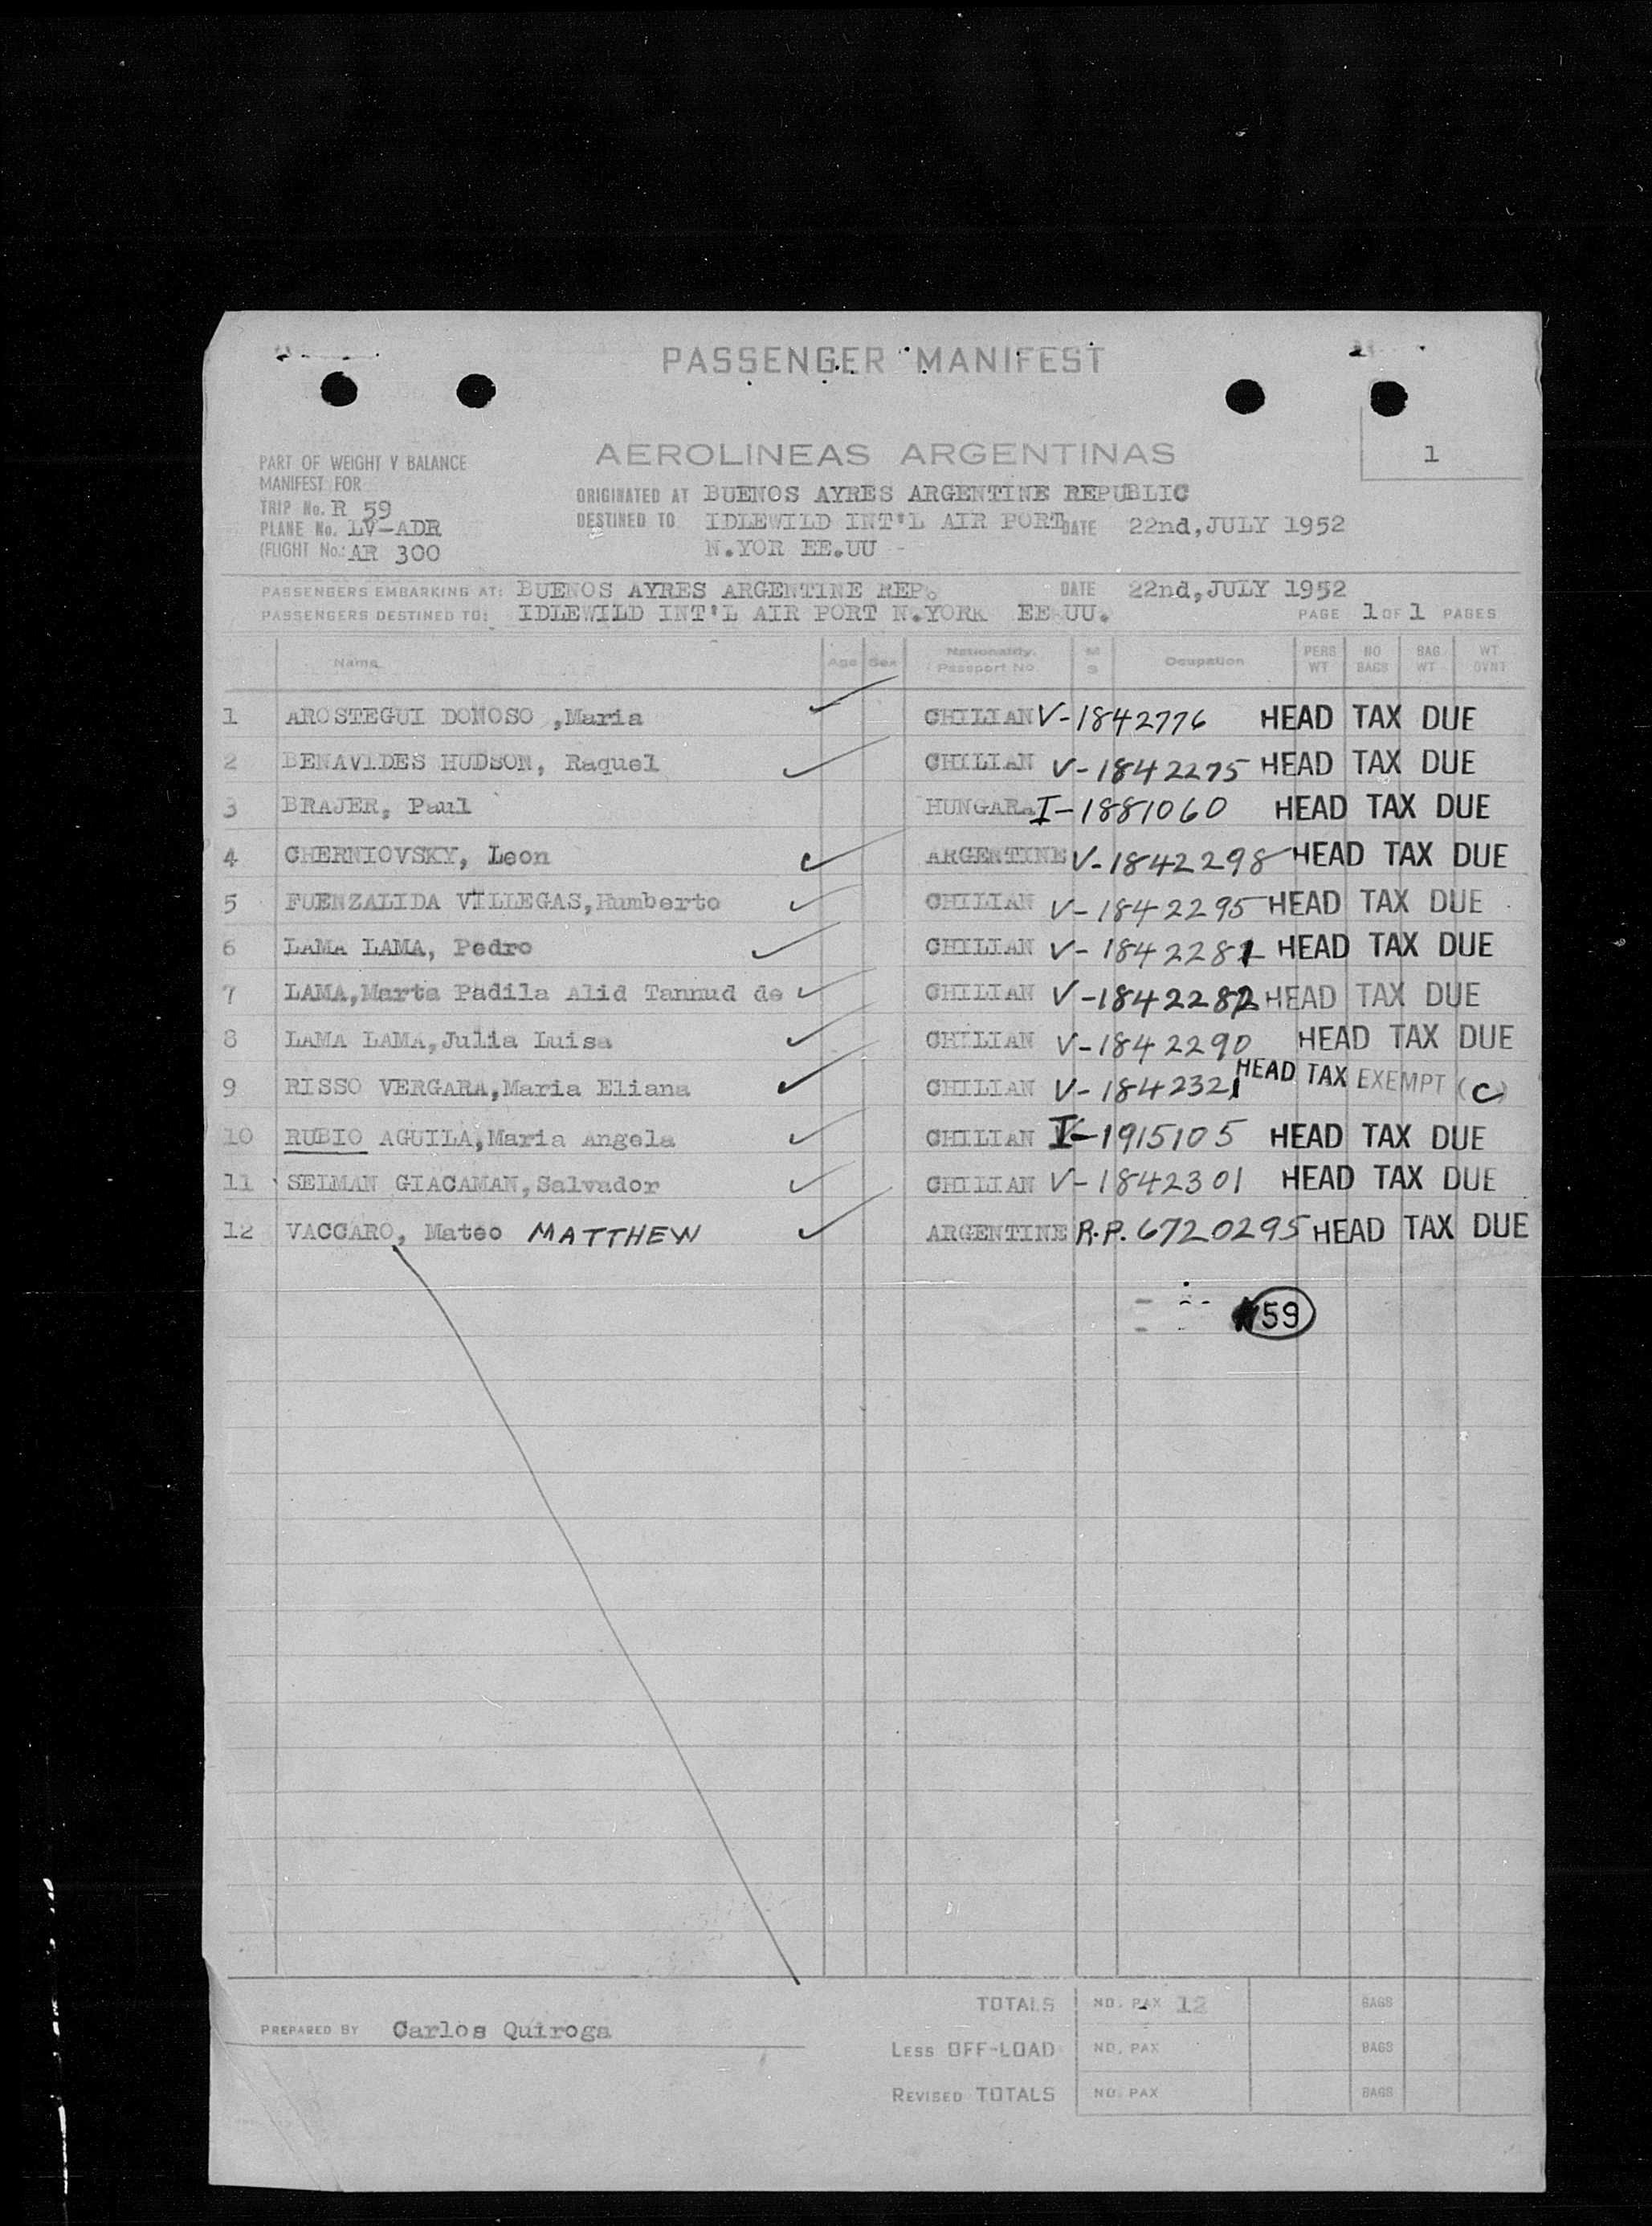 PASSENGER MANIFEST
1
AEROLINEAS ARGENTINAS
PART OF WEIGHT Y BALANCE
MANIFEST FOR
TRIP No. R 59
PLANE No. LV-ADR
(FLIGHT No.: AR 300
ORIGINATED AT BUENOS AYRES ARGENTINE REPUBLIC
DESTINED TO IDLEWILD INT'L AIR PORT DATE 22nd,JULY 1952
N.YOR EE.UU -
PASSENGERS EMBARKING AT: BUENOS AYRES ARGENTINE REP. DATE 22nd,JULY 1952
PASSENGERS DESTINED TO: IDLEWILD INT'L AIR PORT N.YORK EE UU. PAGE 1 OF 1 PAGES
Name Age Sex Nationality. Passport No M S Ocupation PERS WT NO BAGS BAG WT WT OVNT
1 AROSTEGUI DONOSO ,Maria CHILIAN V-1842776 HEAD TAX DUE
2 BENAVIDES HUDSON, Raquel CHILIAN V-1842275 HEAD TAX DUE
3 BRAJER, Paul HUNGAR. I-1881060 HEAD TAX DUE
4 CHERNIOVSKY, Leon ARGENTINE V-1842298 HEAD TAX DUE
5 FUENZALIDA VILLEGAS,Humberto CHILIAN V-1842295 HEAD TAX DUE
6 LAMA LAMA, Pedro CHILIAN V-1842281 HEAD TAX DUE
7 LAMA,Marta Padila Alid Tannud de CHILIAN V-1842282 HEAD TAX DUE
8 LAMA LAMA,Julia Luisa CHILIAN V-1842290 HEAD TAX DUE
9 RISSO VERGARA,Maria Eliana CHILIAN V-1842321 HEAD TAX EXEMPT (C)
10 RUBIO AGUILA,Maria Angela CHILIAN I-1915105 HEAD TAX DUE
11 SELMAN GIACAMAN,Salvador CHILIAN V-1842301 HEAD TAX DUE
12 VACCARO, Mateo MATTHEW ARGENTINE R.P. 6720295 HEAD TAX DUE
59
TOTALS NO. PAX 12 BAGS
PREPARED BY Carlos Quiroga
LESS OFF-LOAD NO. PAX BAGS
REVISED TOTALS NO. PAX BAGS